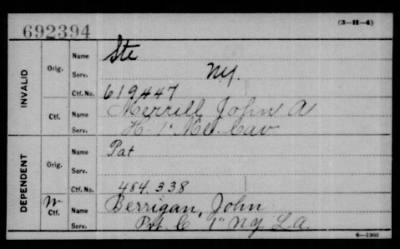 692394
(3-H-4)
INVALID
Orig.
Name
Ste
Serv.
NY.
Ctf. No.
619447
Ctf.
Name
Merrill John A
Serv.
H. 1" Me. Cav
DEPENDENT
Orig.
Name
Pat
Serv.
Ctf. No.
484.338
W
Ctf.
Name
Berrigan, John
Serv.
Pvt. C 1" NY L.A.